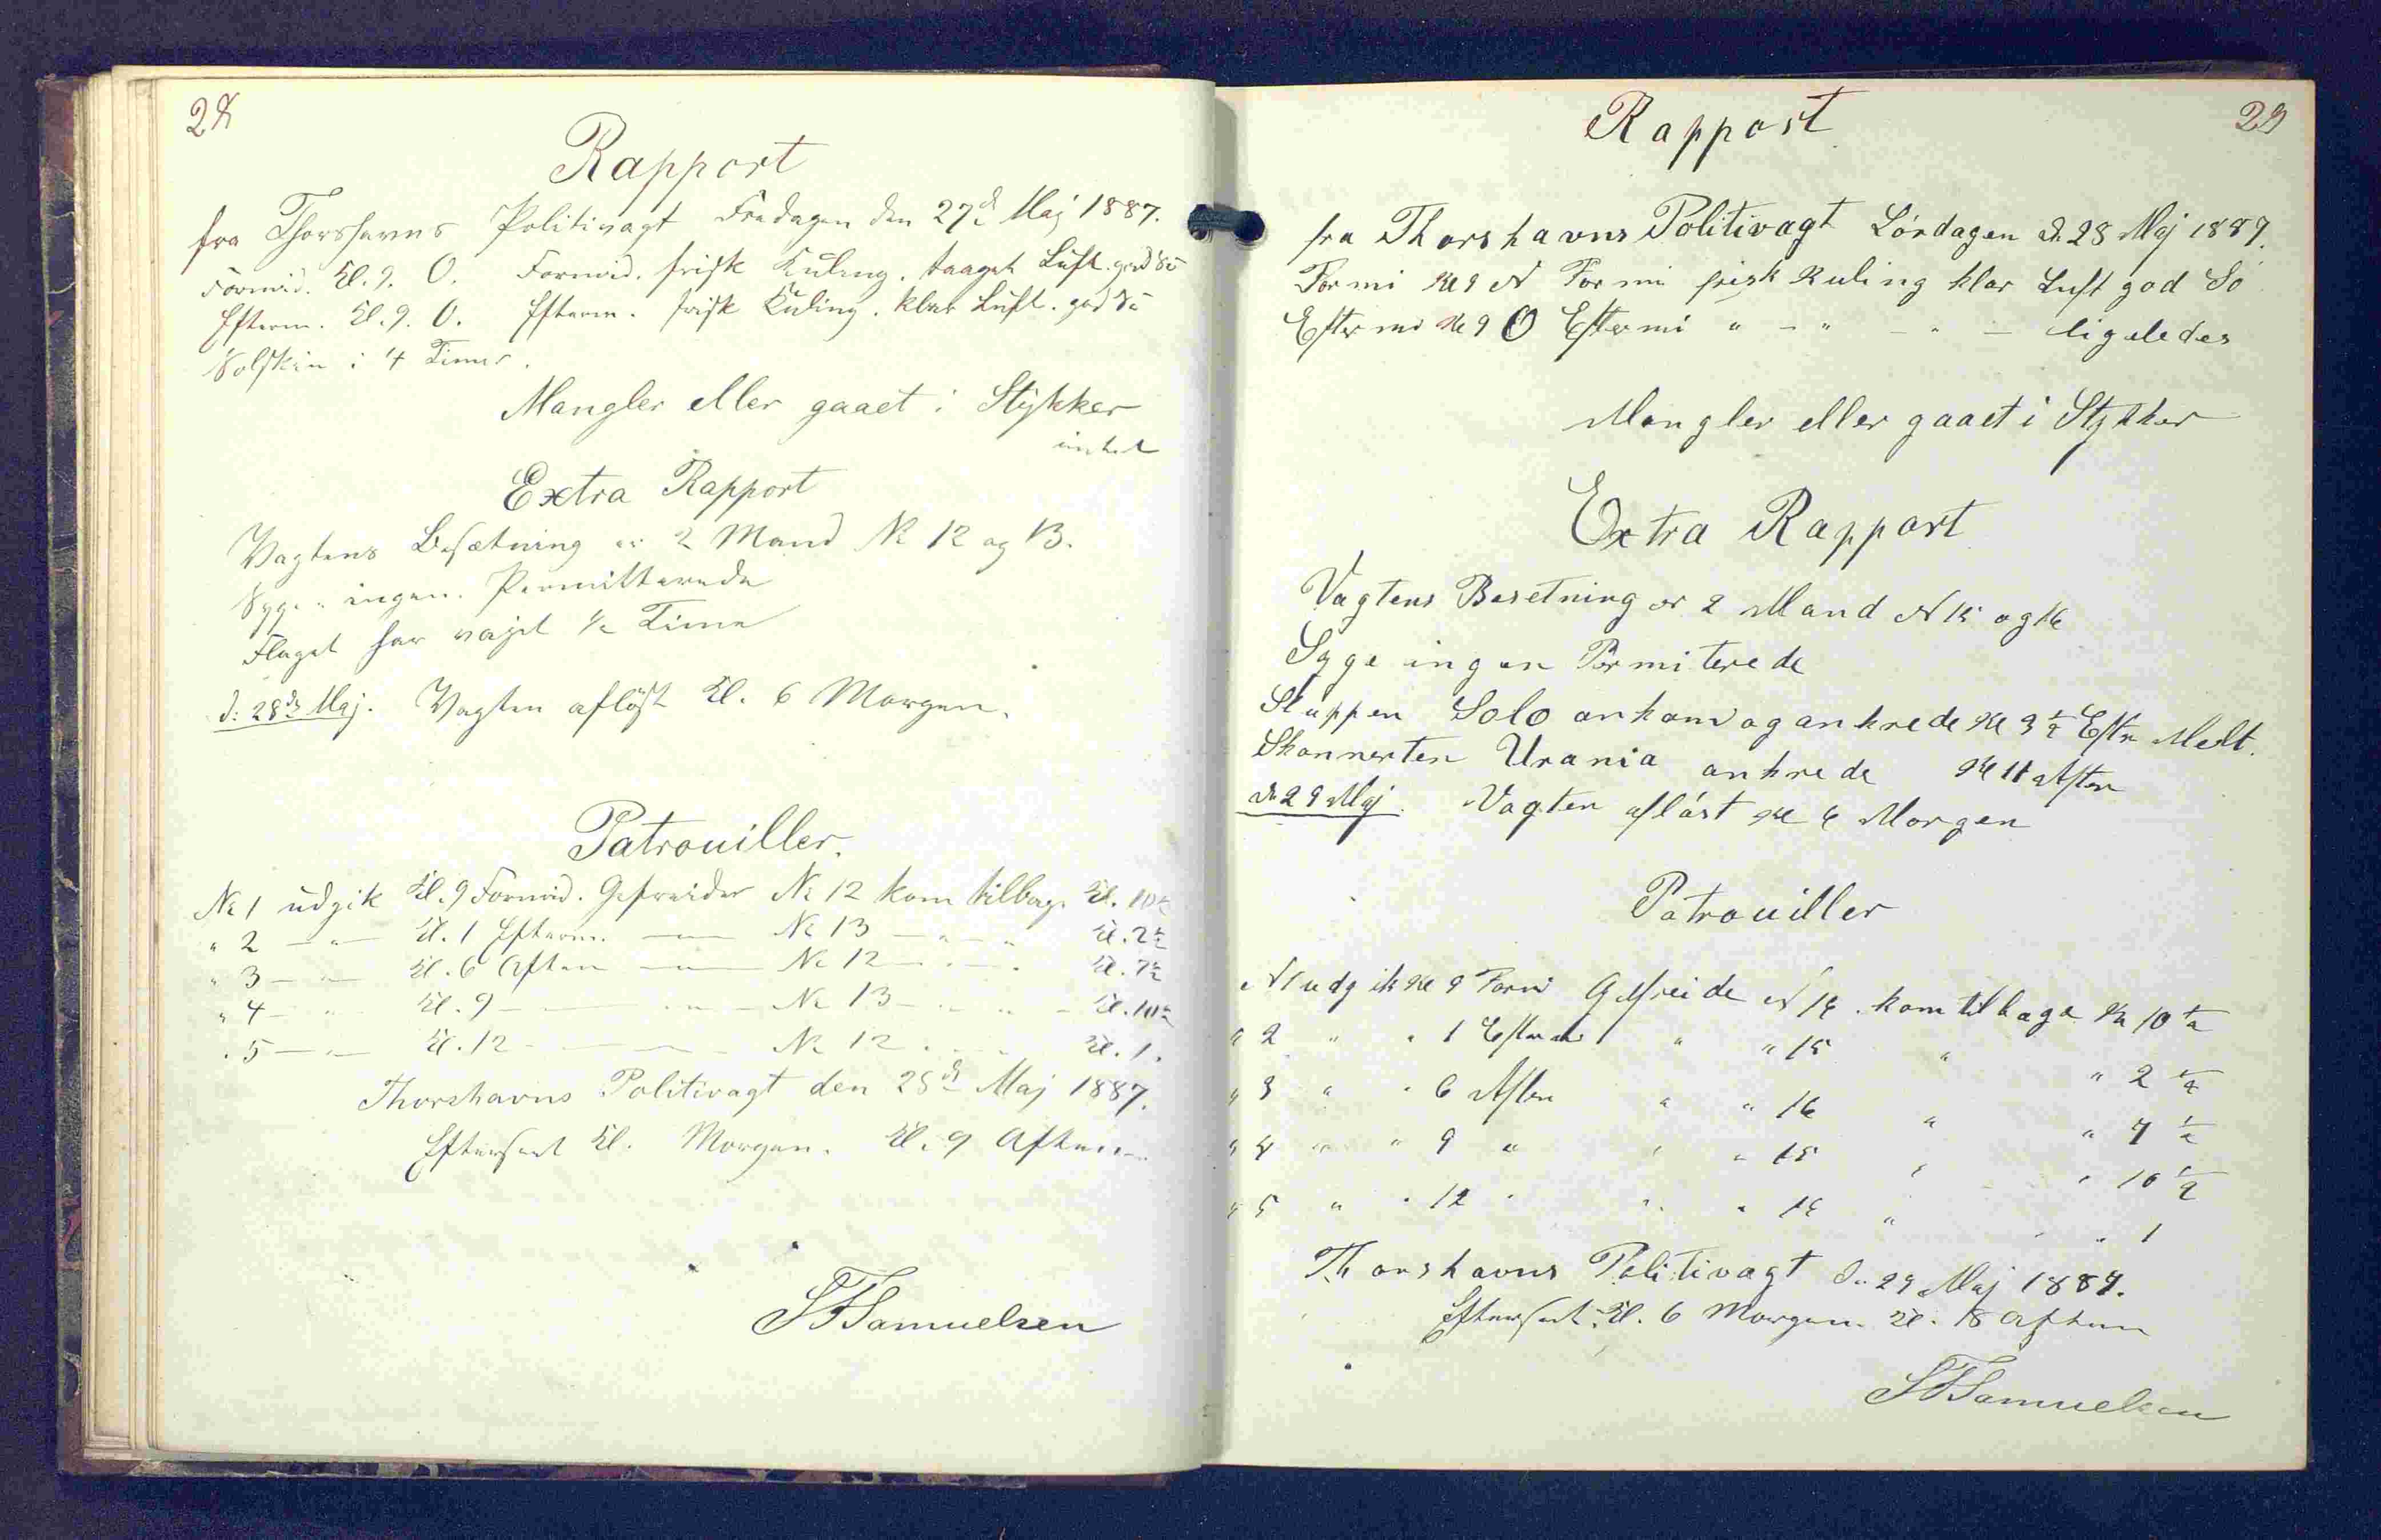 28
Rapport
fra Thorshavns Politivagt Fredagen den 27de Maj 1887.
Formid. Kl. 9. O. Formid. frisk Kuling. taaget Luft. god Sö
Efterm. Kl. 9. O. Efterm. frisk Kuling. klar Luft. god Sö
Solskin i 4 Timer.
Mangler eller gaaet i Stykker
intet
Extra Rapport
Vagtens Besætning er 2 Mand No 12 og 13.
Syge " ingen. Permitterede
Flaget har vajet ½ Time
d: 28de Maj. Vagten aflöst Kl. 6 Morgen.
Patrouiller.
No 1 udgik Kl. 9 Formid. Gefreider No 12 kom tilbage Kl. 10½
" 2 — " — Kl. 1 Efterm. — " — No 13 — " — " Kl. 2½
" 3 — " — Kl. 6 Aften — " — No 12 — " — " Kl. 7½
" 4 — " Kl. 9 — — " — No 13 — " — " — Kl. 10½
" 5 — " — Kl. 12 — — — No 12 " Kl. 1.
Thorshavns Politivagt den 28de Maj 1887.
Efterseet Kl. Morgen. Kl. 9 Aften
SFSamuelsen
29
Rapport
fra Thorshavns Politivagt Lördagen d. 28 Maj 1887.
Formi Kl 9 N Formi frisk Kuling klar Luft god Sö
Eftermi Kl 9 O Eftermi " — " — " — ligeledes
Mangler eller gaaet i Stykker
Extra Rapport
Vagtens Besetning er 2 Mand N 15 og 16
Syge ingen Permiterede
Sluppen Solo ankom og ankrede Kl 3½ Efte Melt.
Skonnerten Urania ankrede Kl 11 Aften
d. 29 Maj. Vagten aflöst Kl 6 Morgen
Patrouiller
N 1 udgik Kl 9 Formi Gefreide N 16 kom tilbage Kl 10½
" 2 " " 1 Eftermi " " 15 " " 2½
" 3 " " 6 Aften " " 16 " " 7½
" 4 " " 9 " " " 15 " " 10½
" 5 " " 12 " " " 16 " " " 1
Thorshavns Politivagt d. 29 Maj 1887.
Efterseet Kl. 6 Morgen. Kl. 8 Aften
SFSamuelsen